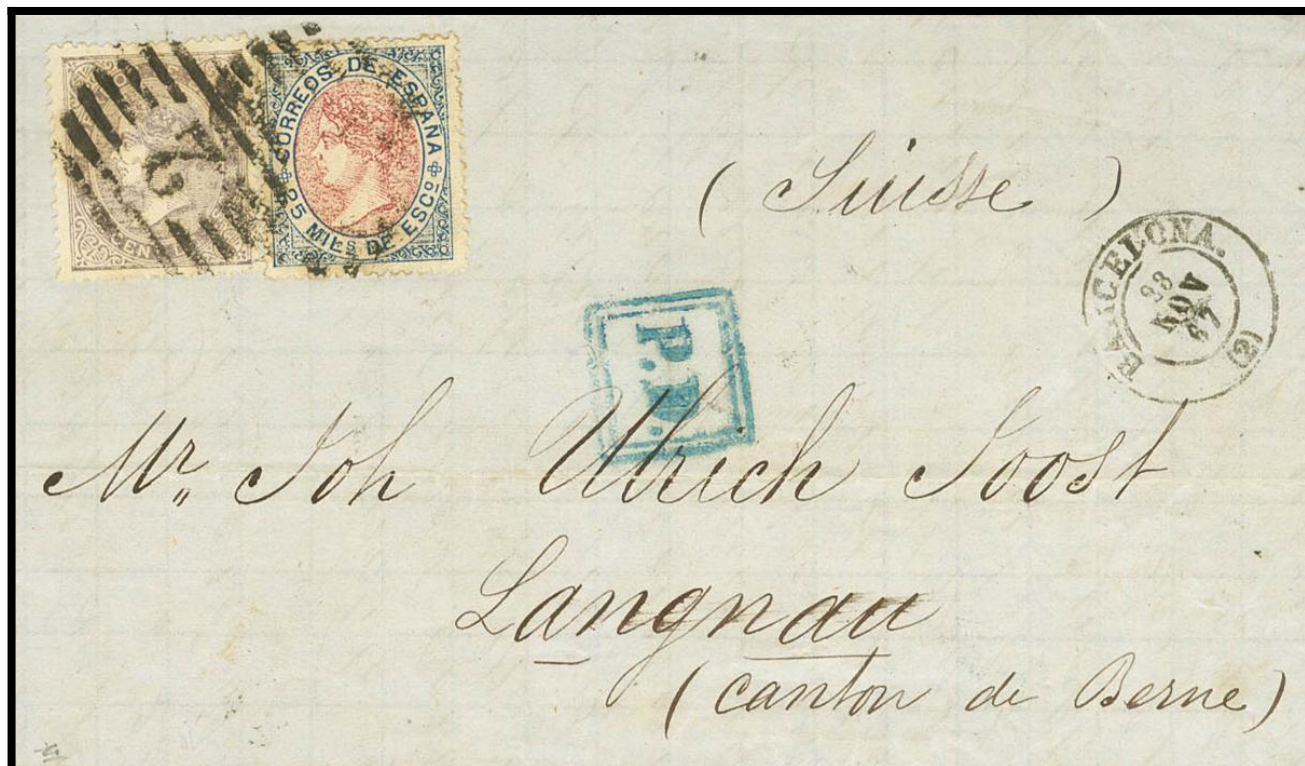 2
CORREOS DE ESPAÑA
25 MIL^S DE ESC^O
(Suisse)
BARCELONA.
NOV
68
(2)
P.D.
Mr. Joh Ulrich Joost
Langnau
(canton de Berne)